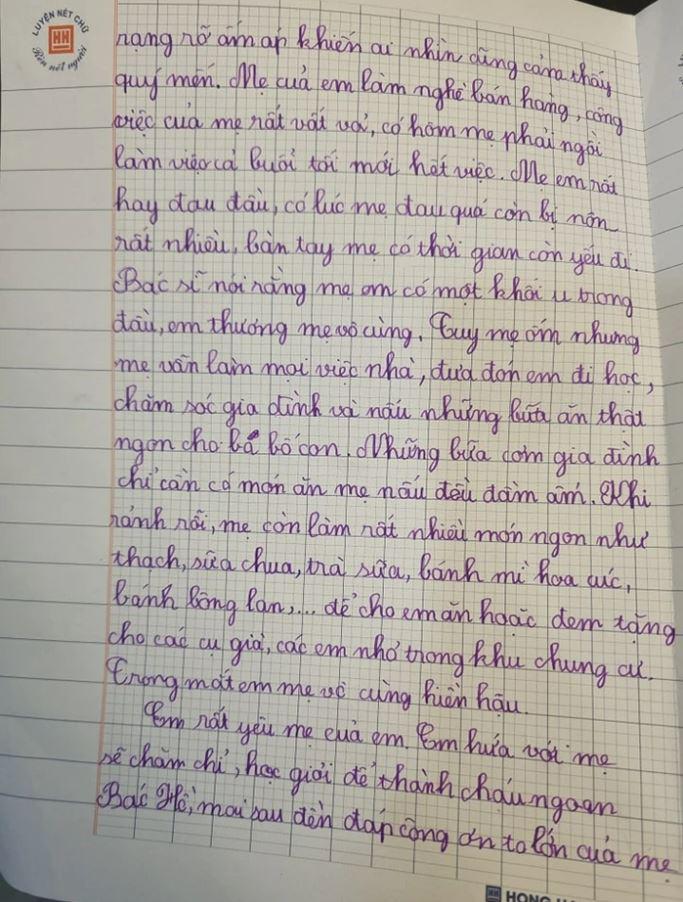 LUYỆN NÉT CHỮ
HH
Rèn nết người
rạng rỡ ấm áp khiến ai nhìn cũng cảm thấy
quý mến. Mẹ của em làm nghề bán hàng, công
việc của mẹ rất vất vả, có hôm mẹ phải ngồi
làm việc cả buổi tối mới hết việc. Mẹ em rất
hay đau đầu, có lúc mẹ đau quá còn bị nôn
rất nhiều, bàn tay mẹ có thời gian còn yếu đi.
Bác sĩ nói rằng mẹ em có một khối u trong
đầu, em thương mẹ vô cùng. Tuy mẹ ốm nhưng
mẹ vẫn làm mọi việc nhà, đưa đón em đi học,
chăm sóc gia đình và nấu những bữa ăn thật
ngon cho bố con. Những bữa cơm gia đình
chỉ cần có món ăn mẹ nấu đều đầm ấm. Khi
rảnh rỗi, mẹ còn làm rất nhiều món ngon như
thạch, sữa chua, trà sữa, bánh mì hoa cúc,
bánh bông lan,... để cho em ăn hoặc đem tặng
cho các cụ già, các em nhỏ trong khu chung cư.
Trong mắt em mẹ vô cùng hiền hậu.
Em rất yêu mẹ của em. Em hứa với mẹ
sẽ chăm chỉ, học giỏi để thành cháu ngoan
Bác Hồ, mai sau đền đáp công ơn to lớn của mẹ
HH HONG